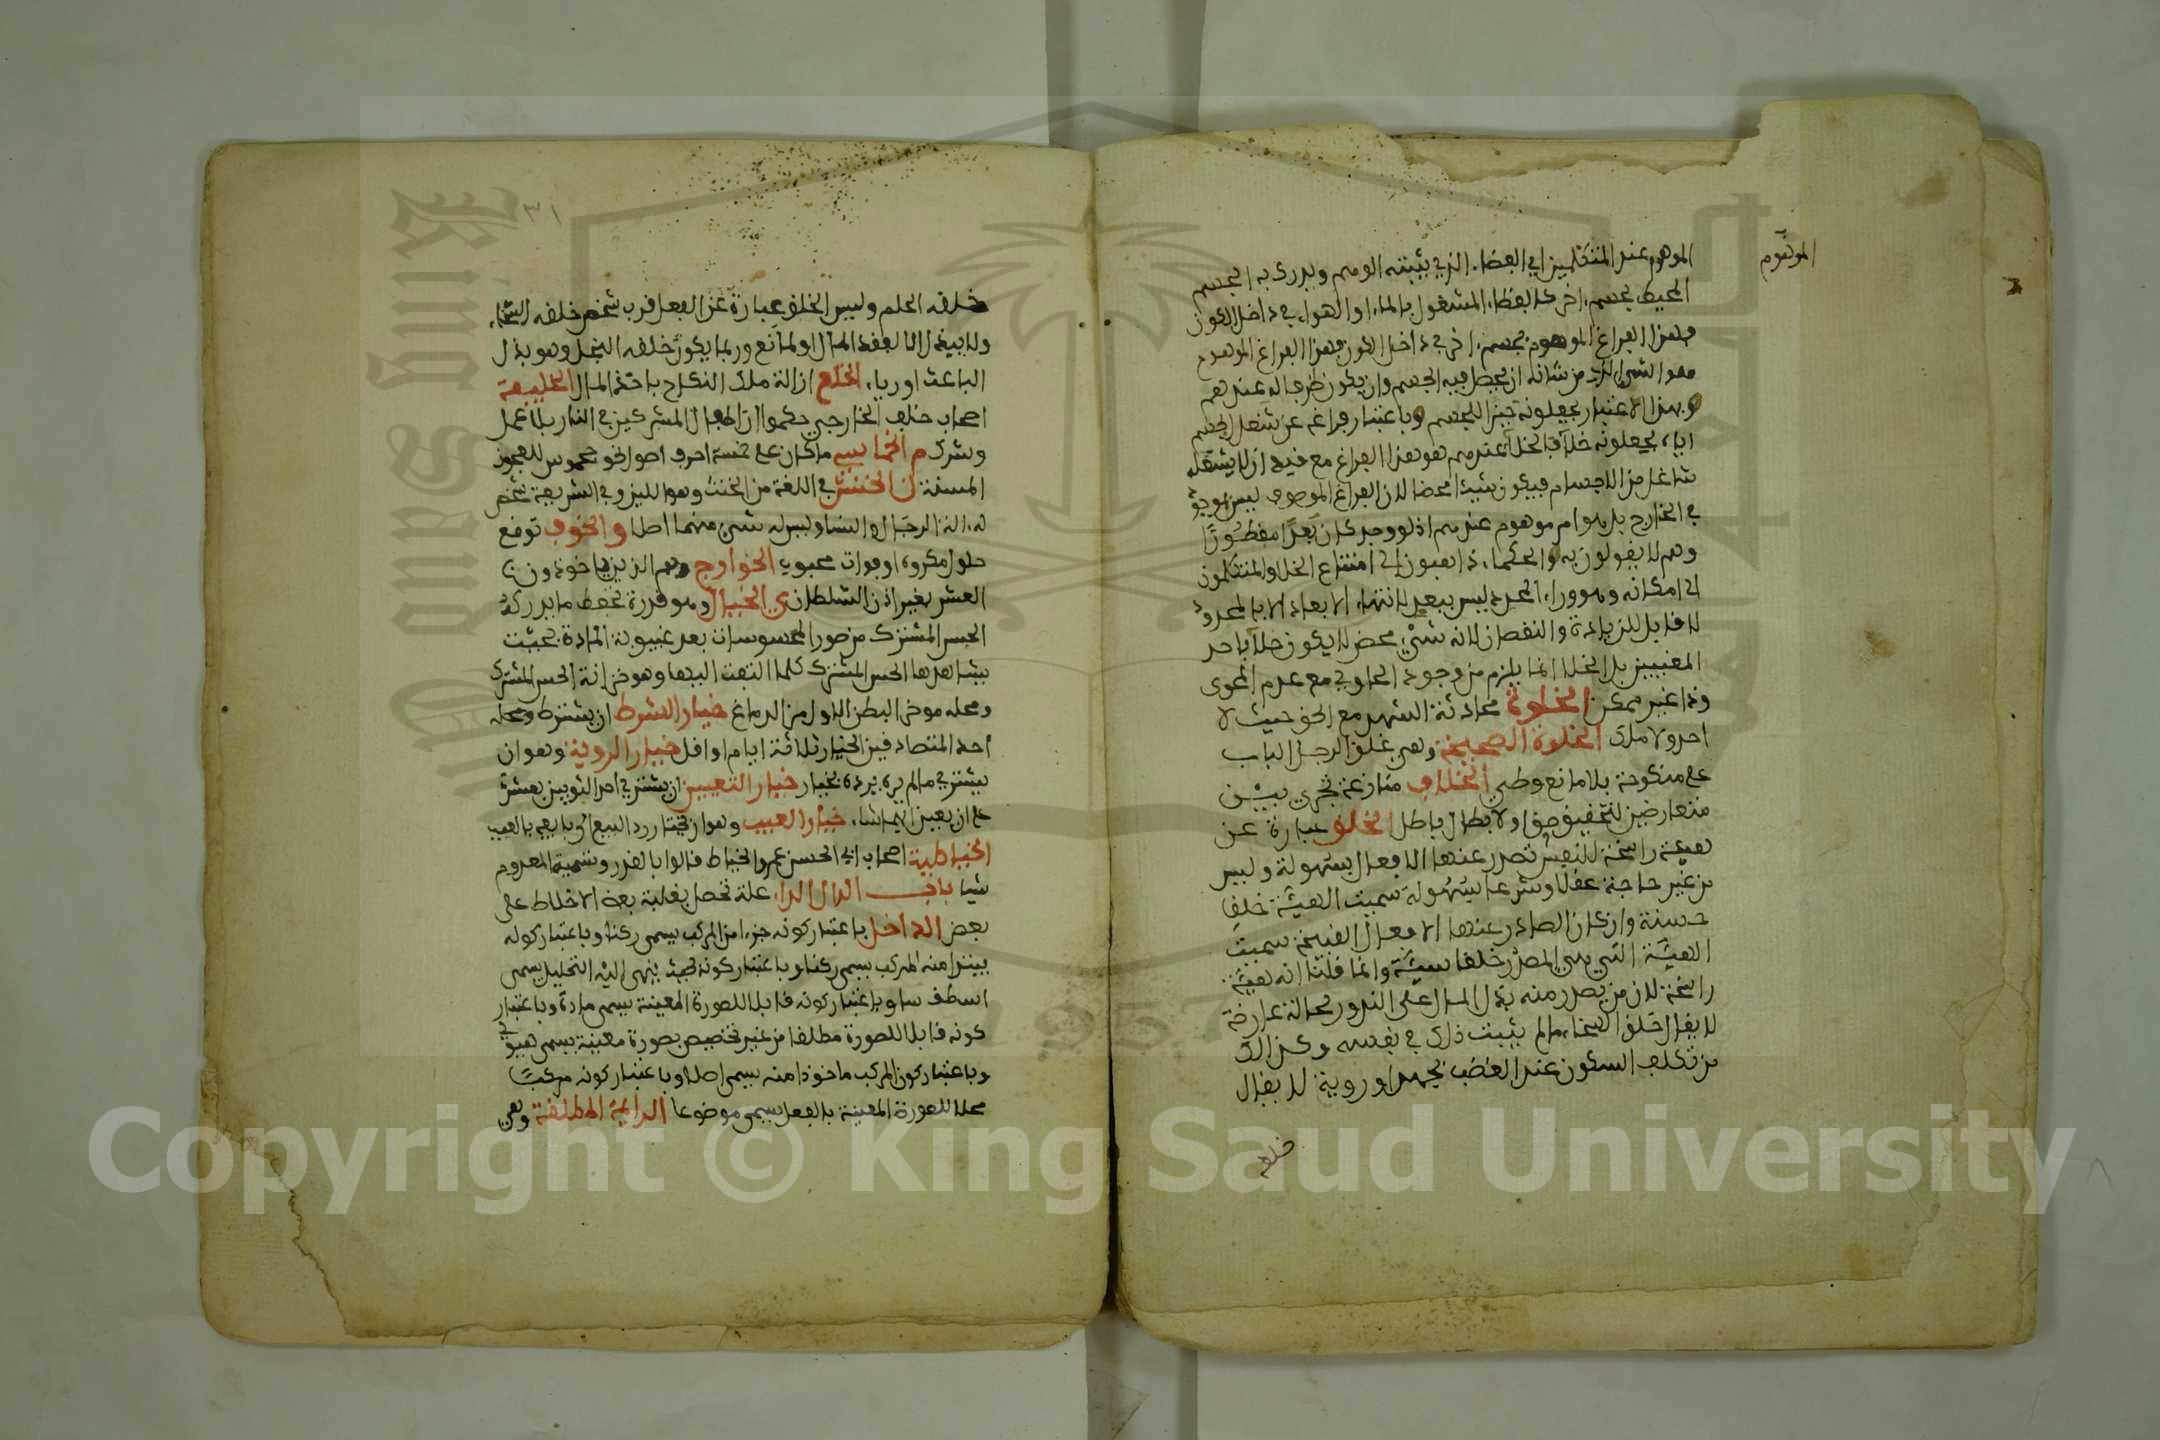 الموهوم عند المتكلمين اي الفضاء الذي يثبته الوهم ويدرك به الجسم
الموهوم
المحيط بجسم اخر كالفضاء المشغول بالماء او الهواء في داخل الكوز
فهذا الفراغ الموهوم بجسم اخر في داخل الكوز فهذا الفراغ الموهوم
هو الشيء الذي من شانه ان يحصل فيه الجسم وان يكون ظرفا له عندهم
وبهذا الاعتبار يجعلونه حيزا للجسم وباعتبار فراغه عن شغل الجسم
اياه يجعلونه خلآ فالخلآ عندهم هو هذا الفراغ مع قيد ان لا يشغله
شاغل من الاجسام فيكون شيئا محضا لان الفراغ الموهوم ليس بموجود
في الخارج بل هو امر موهوم عندهم اذ لو وجد كان بعدا مفطورا
وهم لا يقولون به والحكماء ذاهبون الى امتناع الخلا والمتكلمون
الى امكانه وما وراء المحدد ليس ببعد لانتهاء الابعاد الا بالمحدود
لا قابل للزيادة والنقصان لانه شيء محض لا يكون خلآ باحد
المعنيين بل الخلا انما يلزم من وجود الحاوي مع عدم المحوي
وذا غير ممكن الخلوة محادثة السر مع الحق حيث لا
احد ولا ملك الخلوة الصحيحة وهي غلق الرجل الباب
على منكوحة بلا مانع وطي الخلاف منازعة تجري بين
متعارضين لتحقيق حق او لابطال باطل الخلق عبارة عن
هيئة راسخة للنفس تصدر عنها الافعال بسهولة وليس
من غير حاجة عقلا وشرعا بسهولة سميت الهيئة خلقا
حسنة وان كان الصادر عنها الافعال القبيحة سميت
الهيئة التي هي المصدر خلقا سيئة وانما قلنا انه هيئة
راسخة لان من يصدر منه بذل المال على الندور بحالة عارضة
لا يقال خلقه السخاء ما لم يثبت ذلك في نفسه وكذالك
من تكلف السكون عند الغضب بجهد او روية لا يقال
خلقه
٣١
خلقه الحلم وليس الخلق عبارة عن الفعل فرب شخص خلقه السخاء
ولا يبذل اما لفقد المال او لمانع وربما يكون خلقه البخل وهو يبذل
لباعث او رياء الخلع ازالة ملك النكاح باخذ المال الخليفة
اصحاب خلف الخارجي حكموا ان اطفال المشركين في النار بلا عمل
وشرك م الخماسي ما كان على خمسة احرف اصول نحو جحمرش للعجوز
المسنة ن الخنثى في اللغة من الخنث وهو اللين وفي الشريعة شخص
له الة الرجال والنسا وليس له شيء منهما اصلا و الخوف توقع
حلول مكروه او فوات محبوب الخوارج وهم الذين ياخذون
العشر بغير اذن السلطان ي الخيال وهو قوة تحفظ ما يدركه
الحس المشترك من صور المحسوسات بعد غيبوبة المادة بحيث
يشاهدها الحس المشترك كلما التفت اليها وهو خزانة الحس المشترك
ومحله موخر البطن الاول من الدماغ خيار الشرط ان يشترط وحده
احد المتعاقدين الخيار ثلاثة ايام او اقل خيار الروية وهو ان
يشتري ما لم يره يرده بخيار خيار التعيين ان يشتري احد الثوبين بعشرة
على ان يعين ايهما شاء خيار العيب وهو ان يختار رد المبيع الى بايعه بالعيب
الخياطية اصحاب ابي الحسن عمرو الخياط قالوا بالقدر وتسمية المعدوم
شيا باب الدال الداء علة تحصل بغلبة بعض الاخلاط على
بعض الداخل باعتبار كونه جزءا من المركب يسمى ركنا وباعتبار كونه
يبتدا منه المركب يسمى ركنا وباعتبار كونه بحيث ينتهي اليه التحليل يسمى
اسطقسا وباعتبار كونه قابلا للصورة المعينة يسمى مادة وباعتبار
كونه قابلا للصورة مطلقا من غير تخصيص بصورة معينة يسمى هيولى
وباعتبار كون المركب ماخوذا منه يسمى اصلا وباعتبار كونه مركبا
محلا للصورة المعينة بالفعل يسمى موضوعا الدايمة المطلقة وهي
King Saud University
1957
Copyright © King Saud University